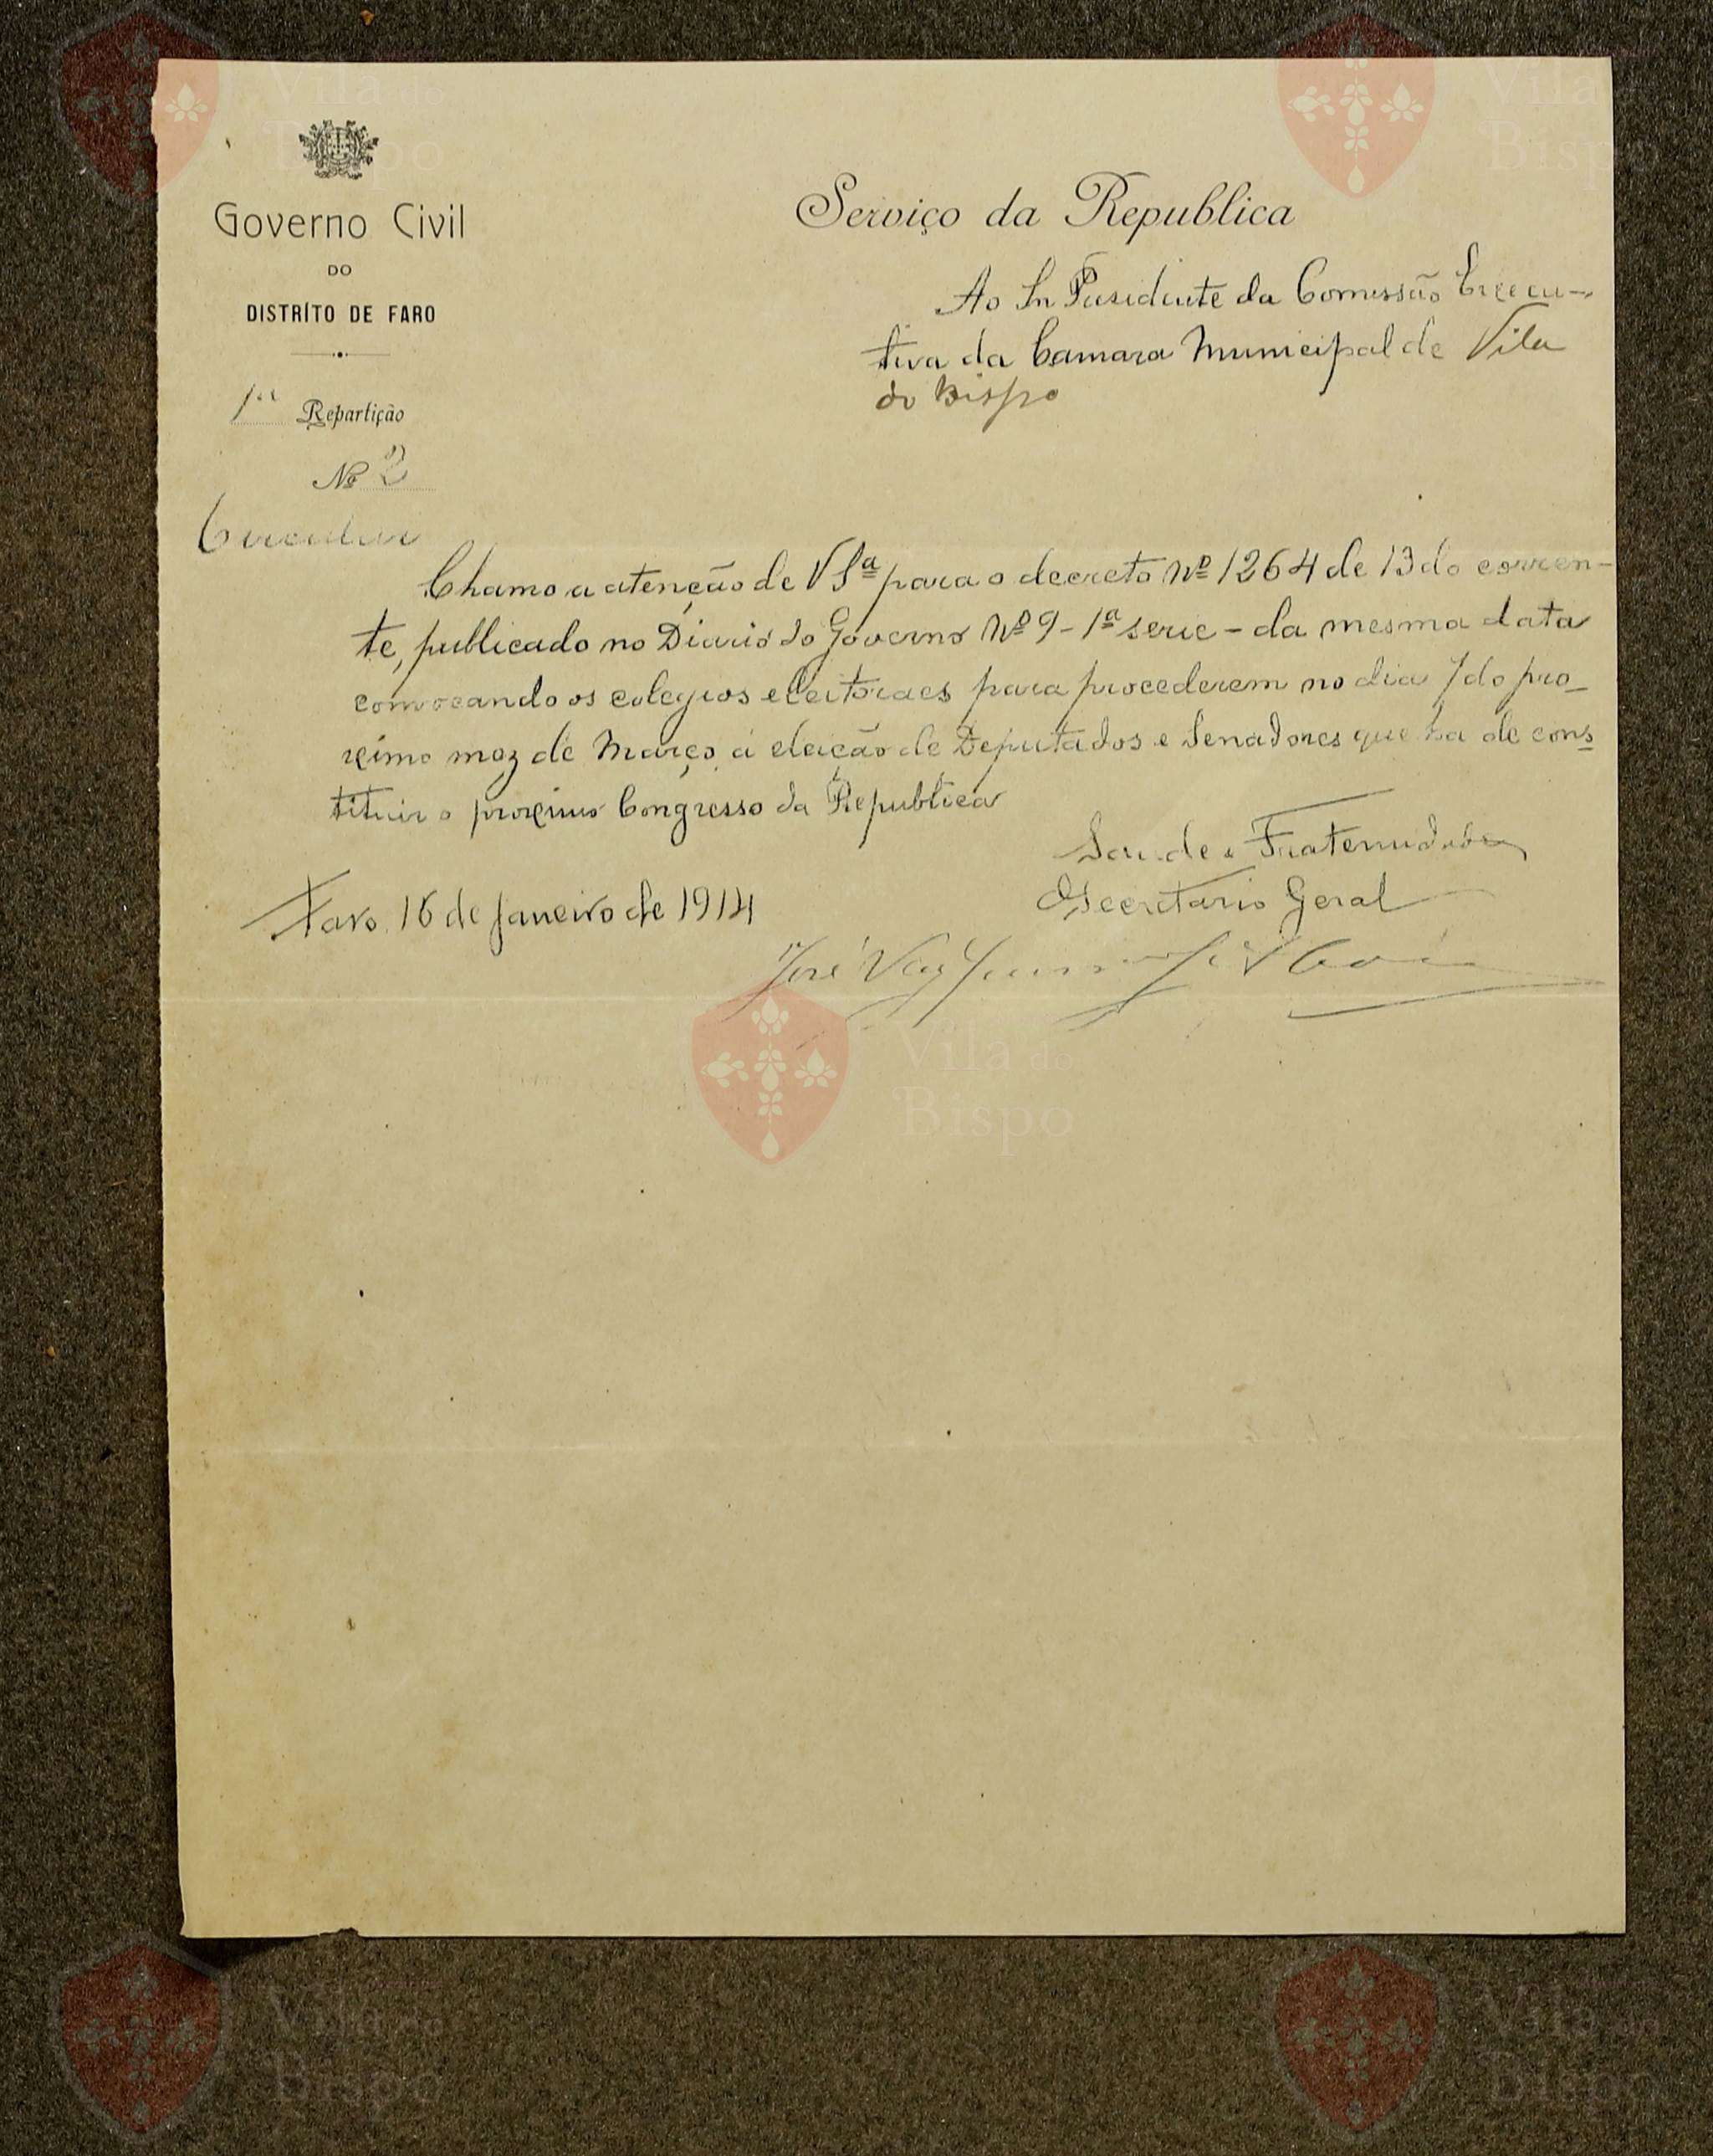 Governo Civil
DO
DISTRÍTO DE FARO
1ª Repartição
Nº 2
Circular
Serviço da Republica
Ao Snr Presidente da Comissão Execu-
tiva da Camara Municipal de Vila
do Bispo
Chamo a atenção de V Sª para o decreto Nº 1264 de 13 do corren-
te, publicado no Diario do Governo Nº 9 - 1ª serie - da mesma data
convocando os colegios eleitoraes para procederem no dia 7 do pro-
ximo mez de Março á eleição de Deputados e Senadores que ha de cons
tituir o proximo Congresso da Republica
Saude e Fraternidade
Faro 16 de Janeiro de 1914
O Secretario Geral
José Vaz
Vila do
Bispo